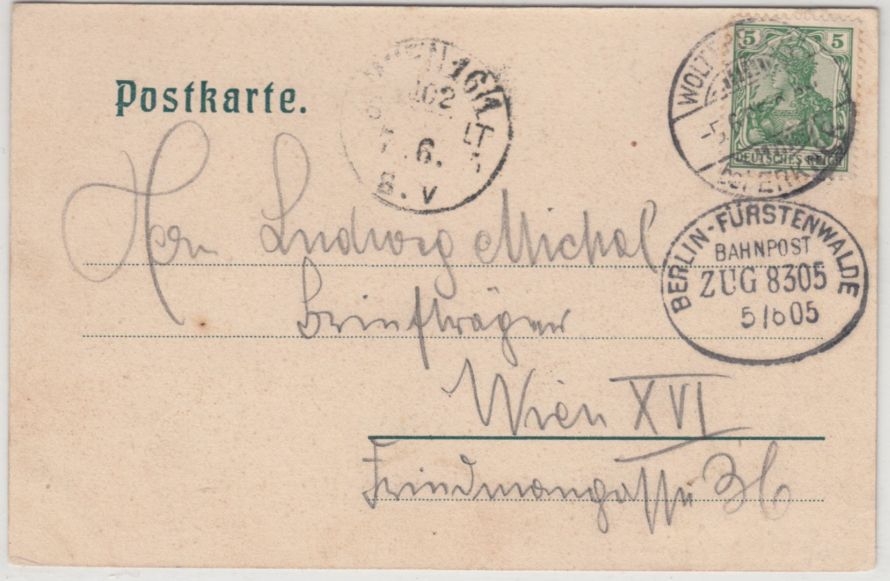 Postkarte.
WIEN 16/1
7. 6.
8. V
5 5
DEUTSCHES REICH
BERLIN-FÜRSTENWALDE
BAHNPOST
ZUG 8305
5/6 05
Herrn Ludwig Michal
Briefträger
Wien XVI
Friedmangasse 36